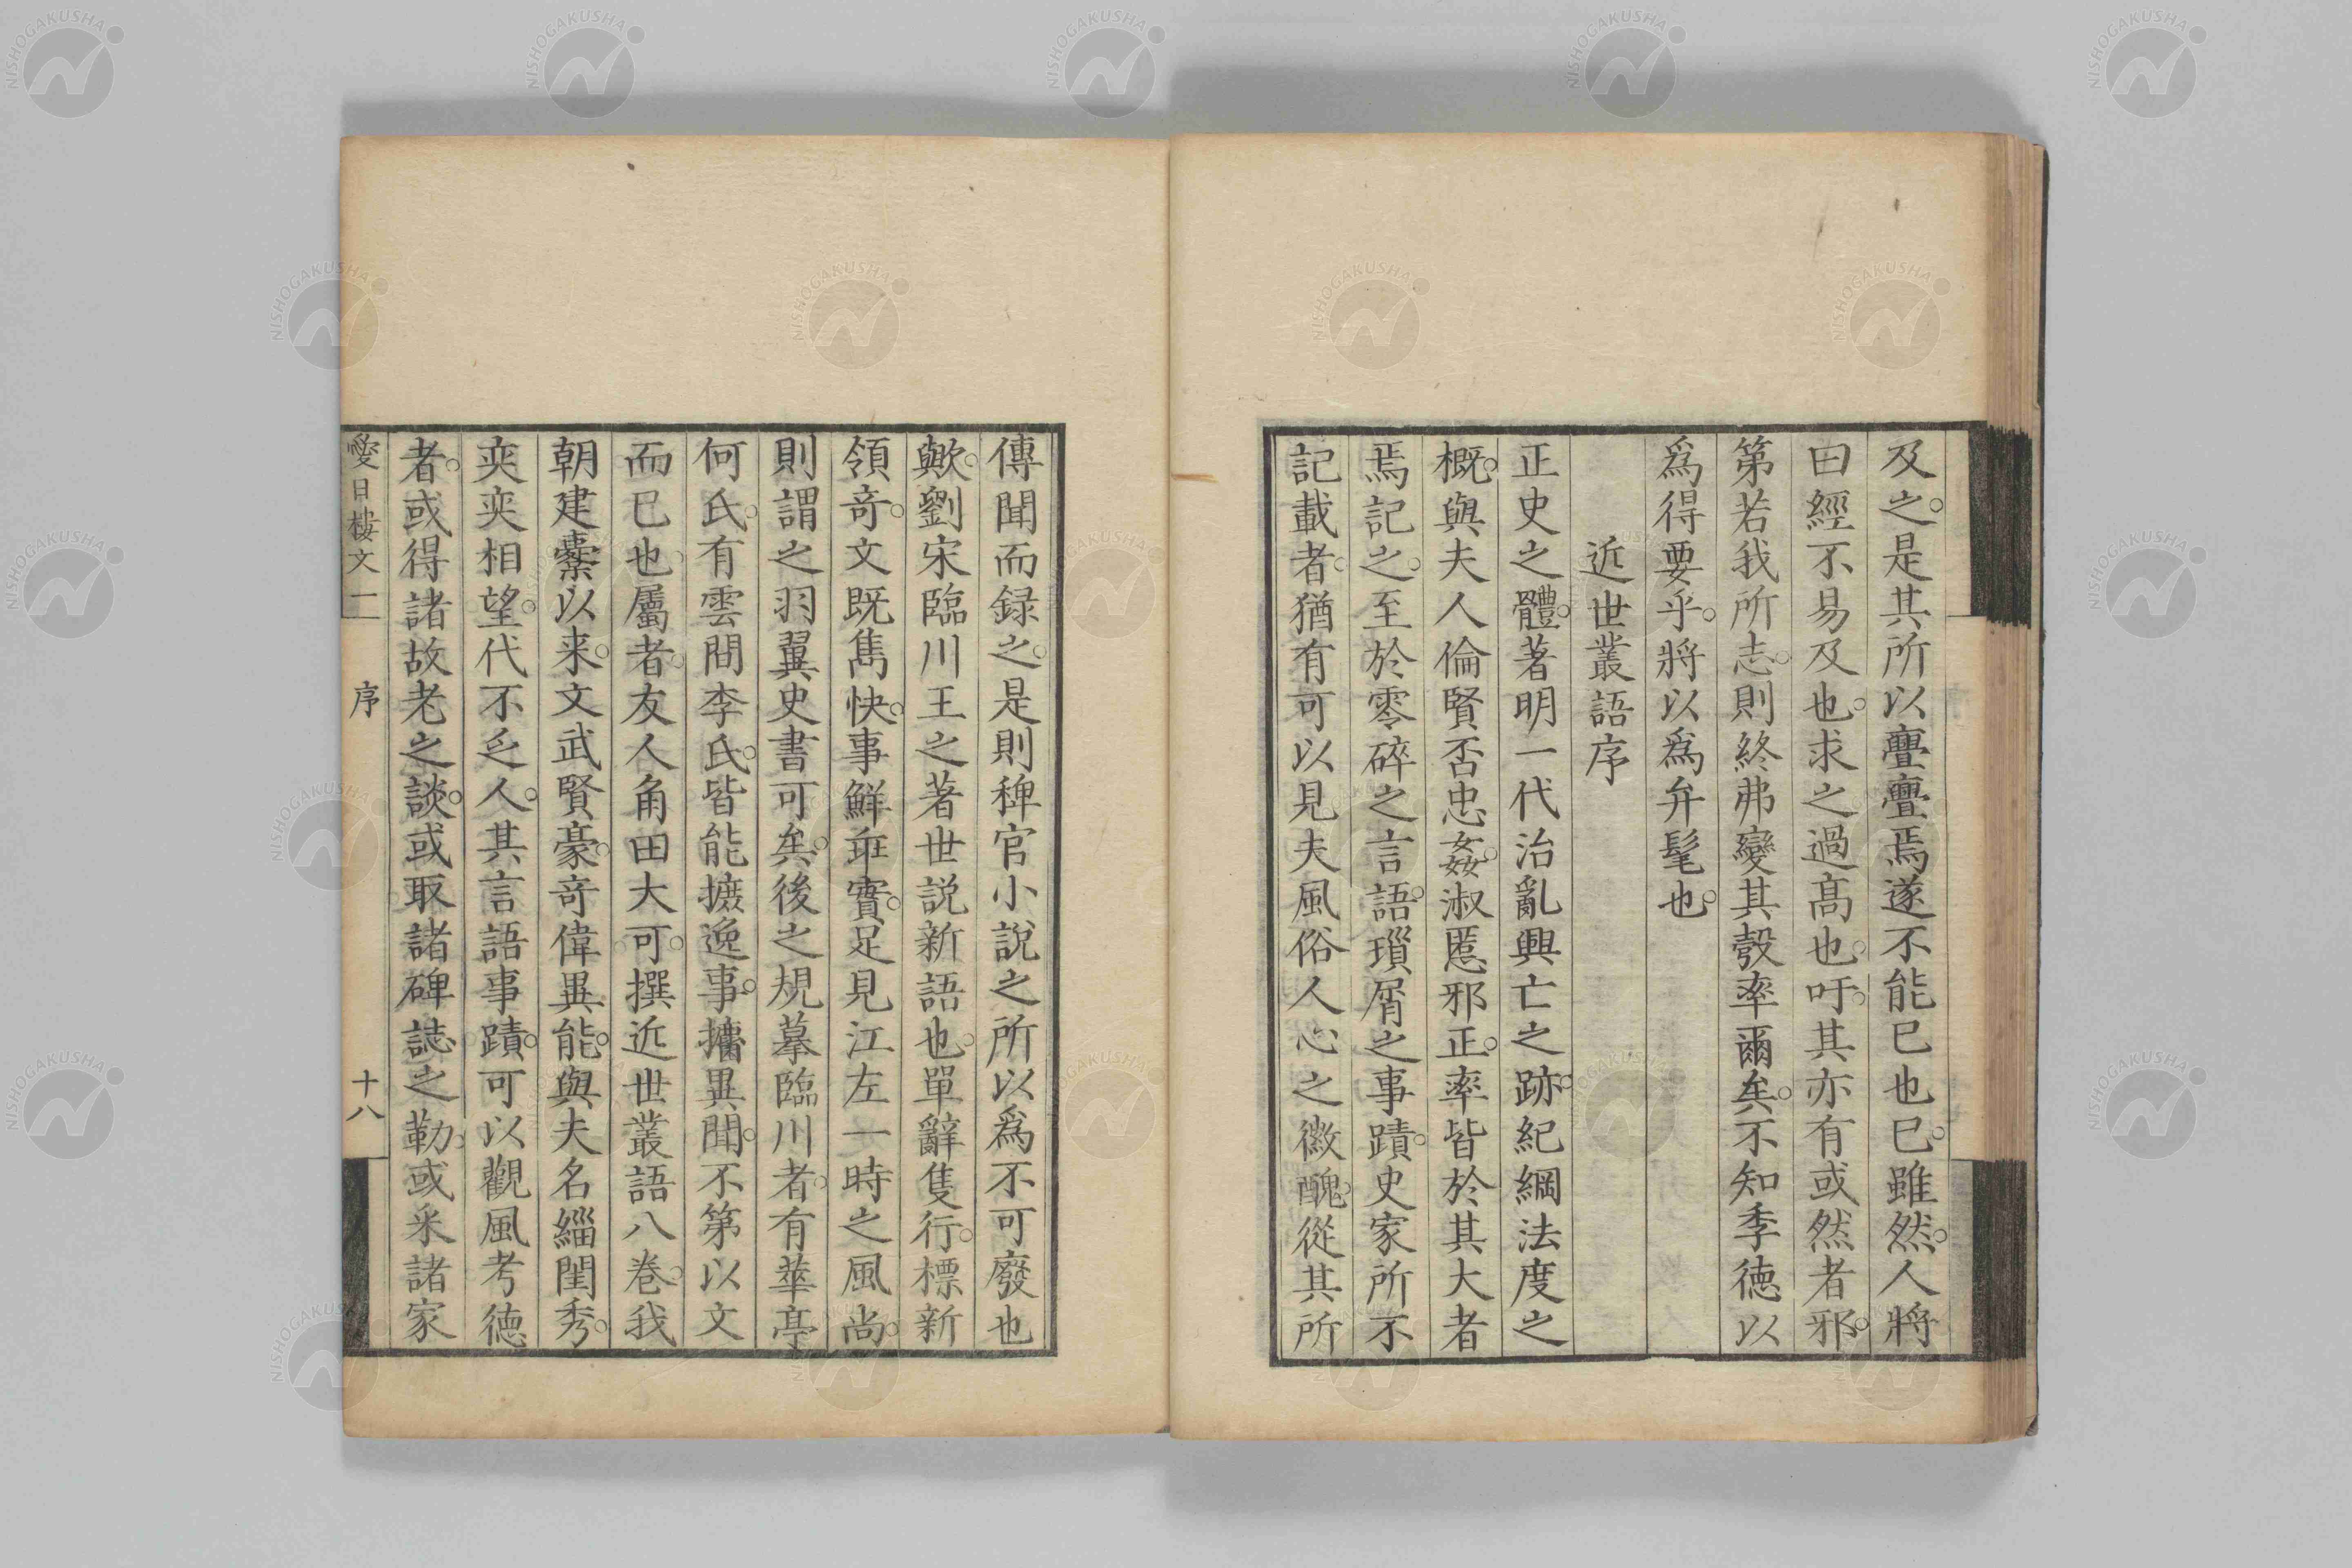 及之。是其所以亹亹焉遂不能已也已。雖然。人將
曰經不易及也。求之過髙也。吁。其亦有或然者邪。
第若我所志。則終弗變其彀率爾矣。不知季徳以
爲得要乎。將以爲弁髦也。
近世叢語序
正史之體。著明一代治亂興亡之跡。紀綱法度之
概。與夫人倫賢否忠姦。淑慝邪正。率皆於其大者
焉記之。至於零碎之言語。瑣屑之事蹟。史家所不
記載者。猶有可以見夫風俗人心之徽醜。從其所
傳聞而録之。是則稗官小説之所以爲不可廢也
歟。劉宋臨川王之著世説新語也。單辭隻行。標新
領竒。文既雋快。事鮮誣實。足見江左一時之風尚。
則謂之羽翼史書可矣。後之規摹臨川者。有華亭
何氏。有雲間李氏。皆能摭逸事。攟異聞。不第以文
而已也。屬者。友人角田大可。撰近世叢語八巻。我
朝建櫜以来。文武賢豪。竒偉異能。與夫名緇閨秀。
奕奕相望。代不乏人。其言語事蹟。可以觀風考徳
者。或得諸故老之談。或取諸碑誌之勒。或釆諸家
愛日樓文二 序 十八
NISHOGAKUSHA